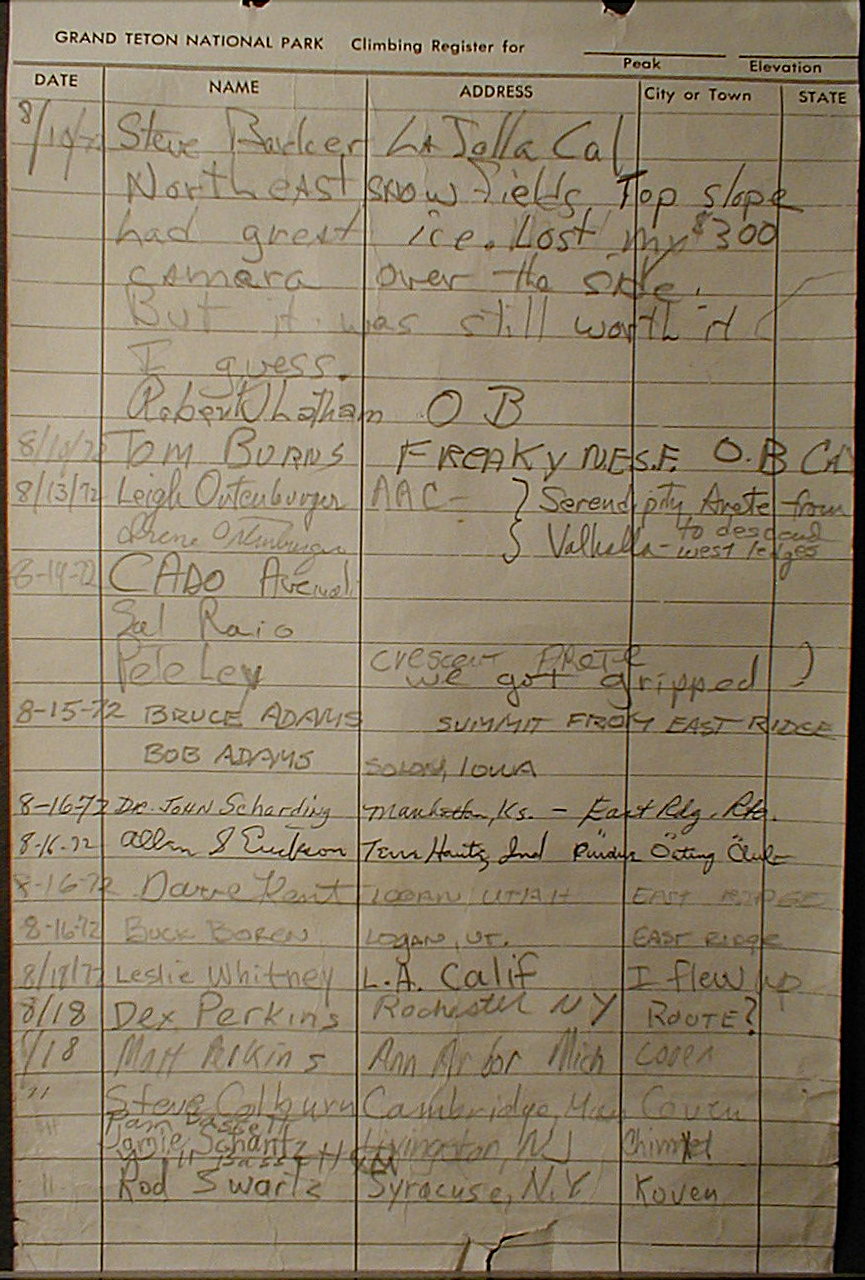 GRAND TETON NATIONAL PARK Climbing Register for
Peak Elevation
DATE NAME ADDRESS City or Town STATE
8/10/72 Steve Barker La Jolla Cal
Northeast snow fields. Top slope
had great ice. Lost my $300
camera over the side.
But it was still worth it
I guess.
Robert Latham O B
8/10/72 TOM BURNS FREAKY N.E.S.F. O.B CA
8/13/72 Leigh Ortenburger AAC- Serendipity Arete from
Irene Ortenburger Valhalla - to descend west ledges
8-14-72 CADO
Sal Raio
Pete Lev Crescent Arete
we got gripped )
8-15-72 BRUCE ADAMS SUMMIT FROM EAST RIDGE
BOB ADAMS SOLON, IOWA
8-16-72 Dr. John Scharding Manhattan, Ks. - East Rdg. Rte.
8-16-72 Allen Erickson Terre Haute, Ind Purdue Outing Club
8-16-72 Dave Kent LOGAN UTAH EAST RIDGE
8-16-72 BUCK BOREN LOGAN, UT. EAST RIDGE
8/18/72 Leslie Whitney L.A. Calif I flew up
8/18 Dex Perkins Rochester NY ROUTE?
8/18 Matt Perkins Ann Arbor Mich coven
" Steve Colburn Cambridge, Mass Coven
Pam Bassett
Jamie Schantz Livingston, NJ
Rod Swartz Syracuse, N.Y Koven